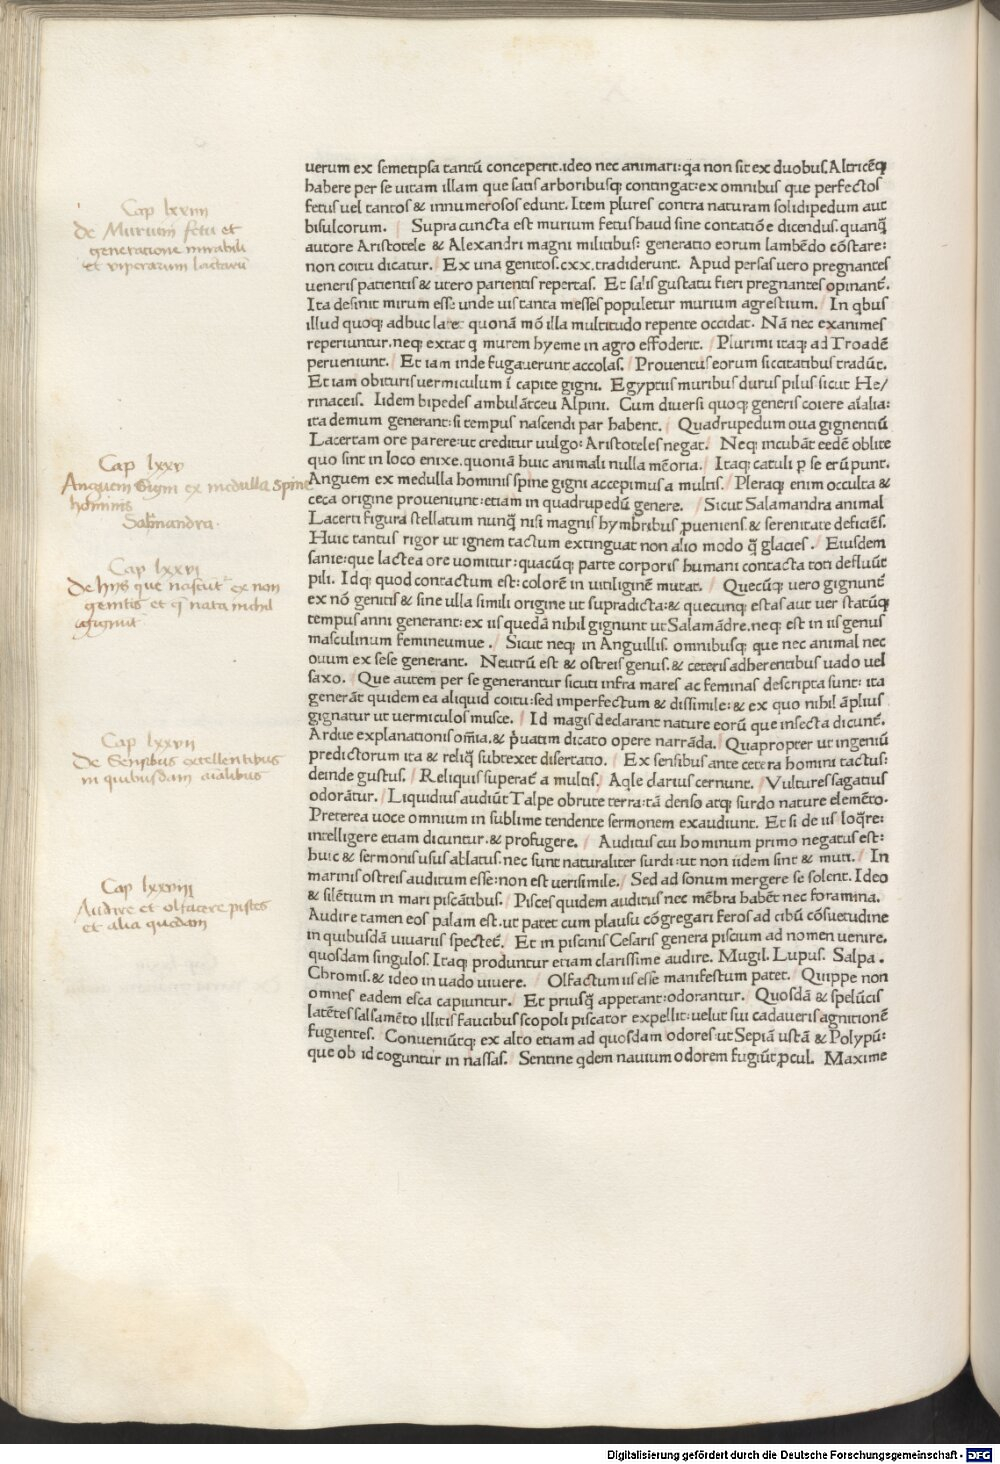 uerum ex semetipsa tantū conceperit.ideo nec animari:qa non sit ex duobus.Altricēq
habere per se uitam illam que satis arboribusq; contingat:ex omnibus que perfectos
fetus uel tantos & innumerosos edunt. Item plures contra naturam solidipedum aut
bisulcorum. Supra cuncta est murium fetus haud sine contatiōe dicendus.quanq̄
autore Aristotele & Alexandri magni militibus: generatio eorum lambēdo cōstare:
non coitu dicatur. Ex una genitos.cxx.tradiderunt. Apud persas uero pregnantes
ueneris patientis & utero parientis repertas. Et salis gustatu fieri pregnantes opinant̄.
Ita desinit mirum esse unde uis tanta messes populetur murium agrestium. In qbus
illud quoq; adhuc latet quonā mō illa multitudo repente occidat. Nā nec exanimes
reperiuntur.neq; extat q murem hyeme in agro effoderit. Plurimi itaq; ad Troadē
perueniunt. Et iam inde fugauerunt accolas. Prouentus eorum siccitatibus tradūt.
Et iam obituris uermiculum ī capite gigni. Egyptiis muribus durus pilus sicut He/
rinaceis. Iidem bipedes ambulāt ceu Alpini. Cum diuersi quoq; generis coiere aīalia:
ita demum generant:si tempus nascendi par habent. Quadrupedum oua gignentiū
Lacertam ore parere:ut creditur uulgo: Aristoteles negat. Neq; incubāt eedē oblite
quo sint in loco enixe.quoniā huic animali nulla mēoria. Itaq; catuli p se erūpunt.
Anguem ex medulla hominis spine gigni accepimus a multis. Pleraq; enim occulta &
ceca origine proueniunt:etiam in quadrupedū genere. Sicut Salamandra animal
Lacerti figura stellatum nunq̄ nisi magnis hymbribus ꝓueniens & serenitate deficiēs.
Huic tantus rigor ut ignem tactum extinguat non alio modo q̄ glacies. Eiusdem
sanie:que lactea ore uomitur:quacūq; parte corporis humani contacta toti defluūt
pili. Idq; quod contactum est:colorē in uitiliginē mutat. Quecūq; uero gignunt̄
ex nō genitis & sine ulla simili origine ut supradicta:& quecunq; estas aut uer statūq;
tempus anni generant:ex iis quedā nihil gignunt ut Salamādre.neq; est in iis genus
masculinum femineumue. Sicut neq; in Anguillis. omnibusq; que nec animal nec
ouum ex sese generant. Neutrū est & ostreis genus.& ceteris adherentibus uado uel
saxo. Que autem per se generantur sicuti infra mares ac feminas descripta sunt: ita
generāt quidem ea aliquid coitu:sed imperfectum & dissimile:& ex quo nihil āplius
gignatur ut uermiculos musce. Id magis declarant nature eorū que insecta dicunt̄.
Ardue explanationis oīa.& p̄uatim dicato opere narrāda. Quapropter ut ingeniū
predictorum ita & reliq̄ subtexet disertatio. Ex sensibus ante cetera homini tactus:
deinde gustus. Reliquis superat̄ a multis. Aqle clarius cernunt. Vultures sagatius
odorātur. Liquidius audiūt Talpe obrute terra:tā denso atq; surdo nature elemēto.
Preterea uoce omnium in sublime tendente sermonem exaudiunt. Et si de iis loq̄re:
intelligere etiam dicuntur.& profugere. Auditus cui hominum primo negatus est:
huic & sermonis usus ablatus.nec sunt naturaliter surdi:ut non iidem sint & muti. In
marinis ostreis auditum esse:non est uerisimile. Sed ad sonum mergere se solent. Ideo
& silētium in mari piscātibus. Pisces quidem auditus nec mēbra habēt nec foramina.
Audire tamen eos palam est.ut patet cum plausu cōgregari feros ad cibū cōsuetudine
in quibusdā uiuariis spectet̄. Et in piscinis Cesaris genera piscium ad nomen uenire.
quosdam singulos. Itaq; produntur etiam clarissime audire. Mugil. Lupus. Salpa.
Chromis.& ideo in uado uiuere. Olfactum iis esse manifestum patet. Quippe non
omnes eadem esca capiuntur. Et priusq̄ appetant:odorantur. Quosdā & speliicis
latētes salsamēto illitis faucibus scopoli piscator expellit:uelut sui cadaueris agnitionē
fugientes. Conueniūtq; ex alto etiam ad quosdam odores:ut Sepiā ustā & Polypū:
que ob id coguntur in nassas. Sentine qdem nauium odorem fugiūt ꝓcul. Maxime
Cap lxxiiii
De Murium fetu et
generatione mirabili
et viperarum lactarū
Cap lxxv
Anguem Gigni ex medulla spine
hominis
Salamandra.
Cap lxxvi
De hijs que nascūt ex non
genitis et q nata nichil
gignūt
Cap lxxvii
De Sensibus excellentibus
in quibusdam aīalibus
Cap lxxviii
Audire et olfacere pisces
et alia quedam
Digitalisierung gefördert durch die Deutsche Forschungsgemeinschaft - DFG